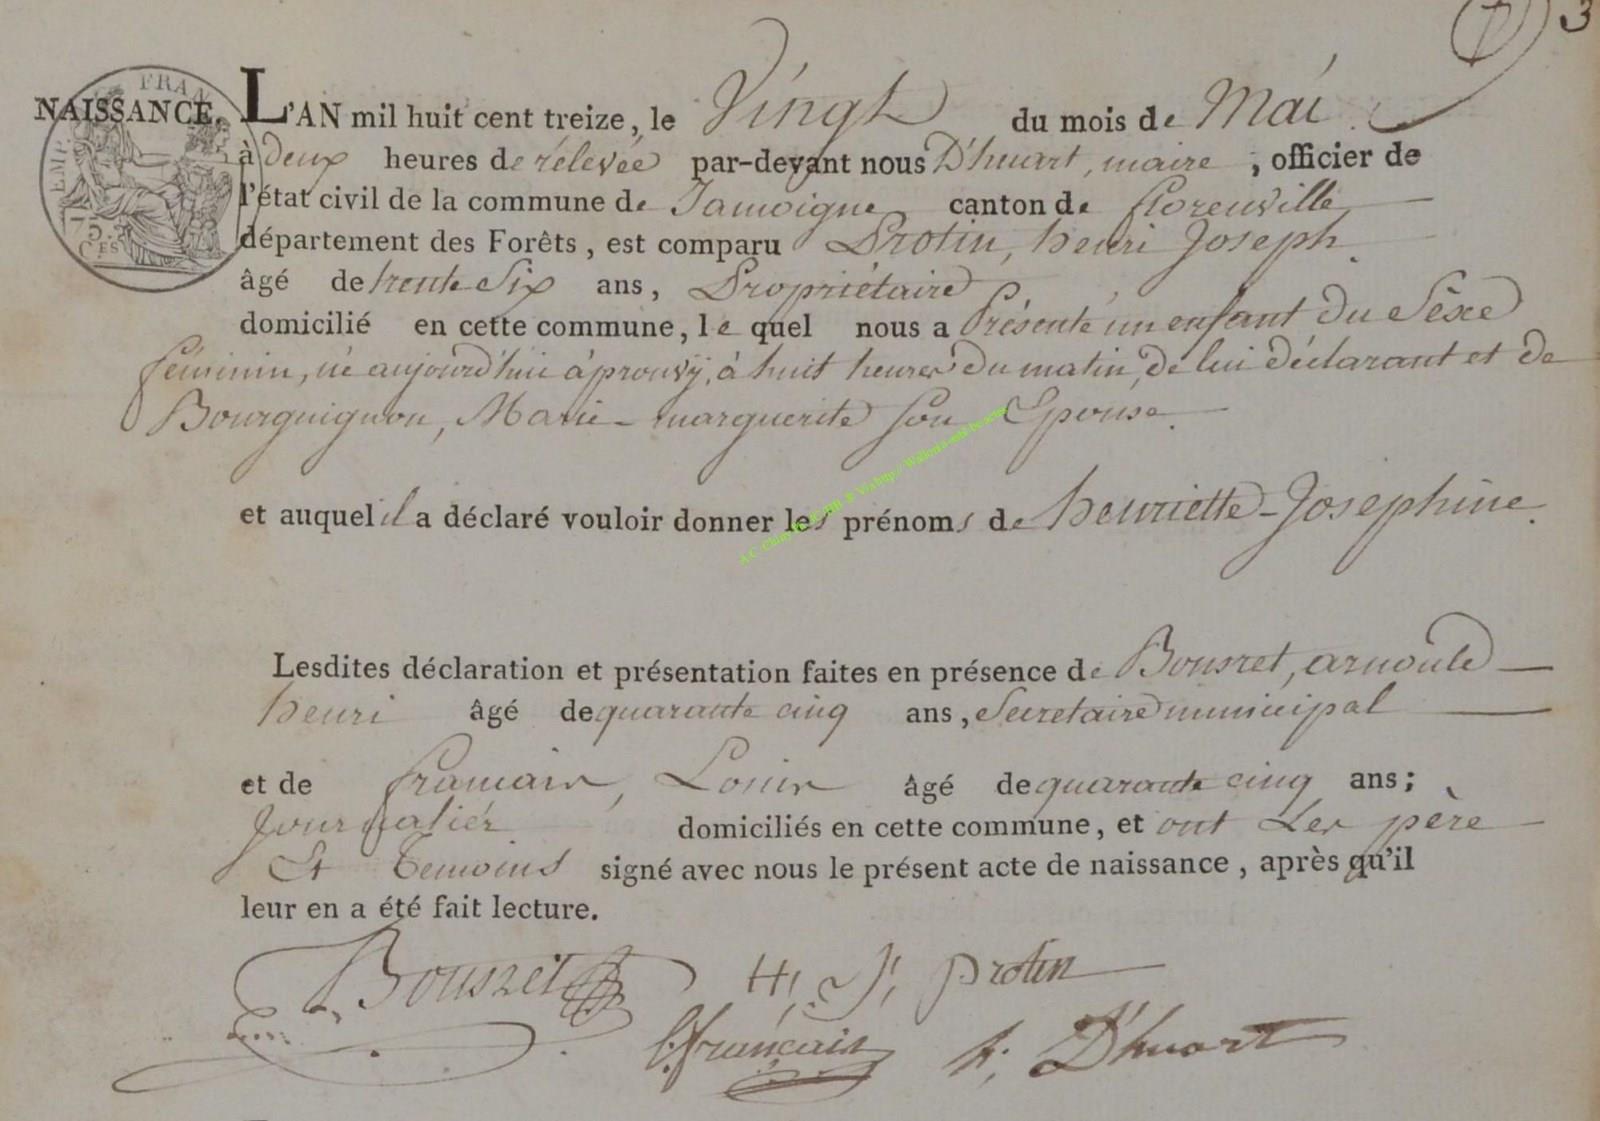 3
NAISSANCE. L'AN mil huit cent treize, le Vingt du mois de Mai
à deux heures de rélevée par-devant nous D'huart, maire, officier de
l'état civil de la commune de Jamoigne canton de florenville
département des Forêts, est comparu Protin, henri Joseph.
âgé de trente Six ans, Propriétaire
domicilié en cette commune, le quel nous a Présenté un enfant du Séxe
féminin, né aujourd'hui à prouvÿ, à huit heures du matin, de lui déclarant et de
Bourguignon, Marie-marguerite Son Epouse.
et auquel il a déclaré vouloir donner les prénoms de henriette-Josephine.
Lesdites déclaration et présentation faites en présence de Bousret, arnould
henri âgé de quarante cinq ans, Secretaire municipal
et de francais, Louis âgé de quarante cinq ans;
Journaliér domiciliés en cette commune, et ont Les père
Et Temoins signé avec nous le présent acte de naissance, après qu'il
leur en a été fait lecture.
Bousret H, J, protin
l: françain h; D'huart
EMP. FRAN
75 Ces